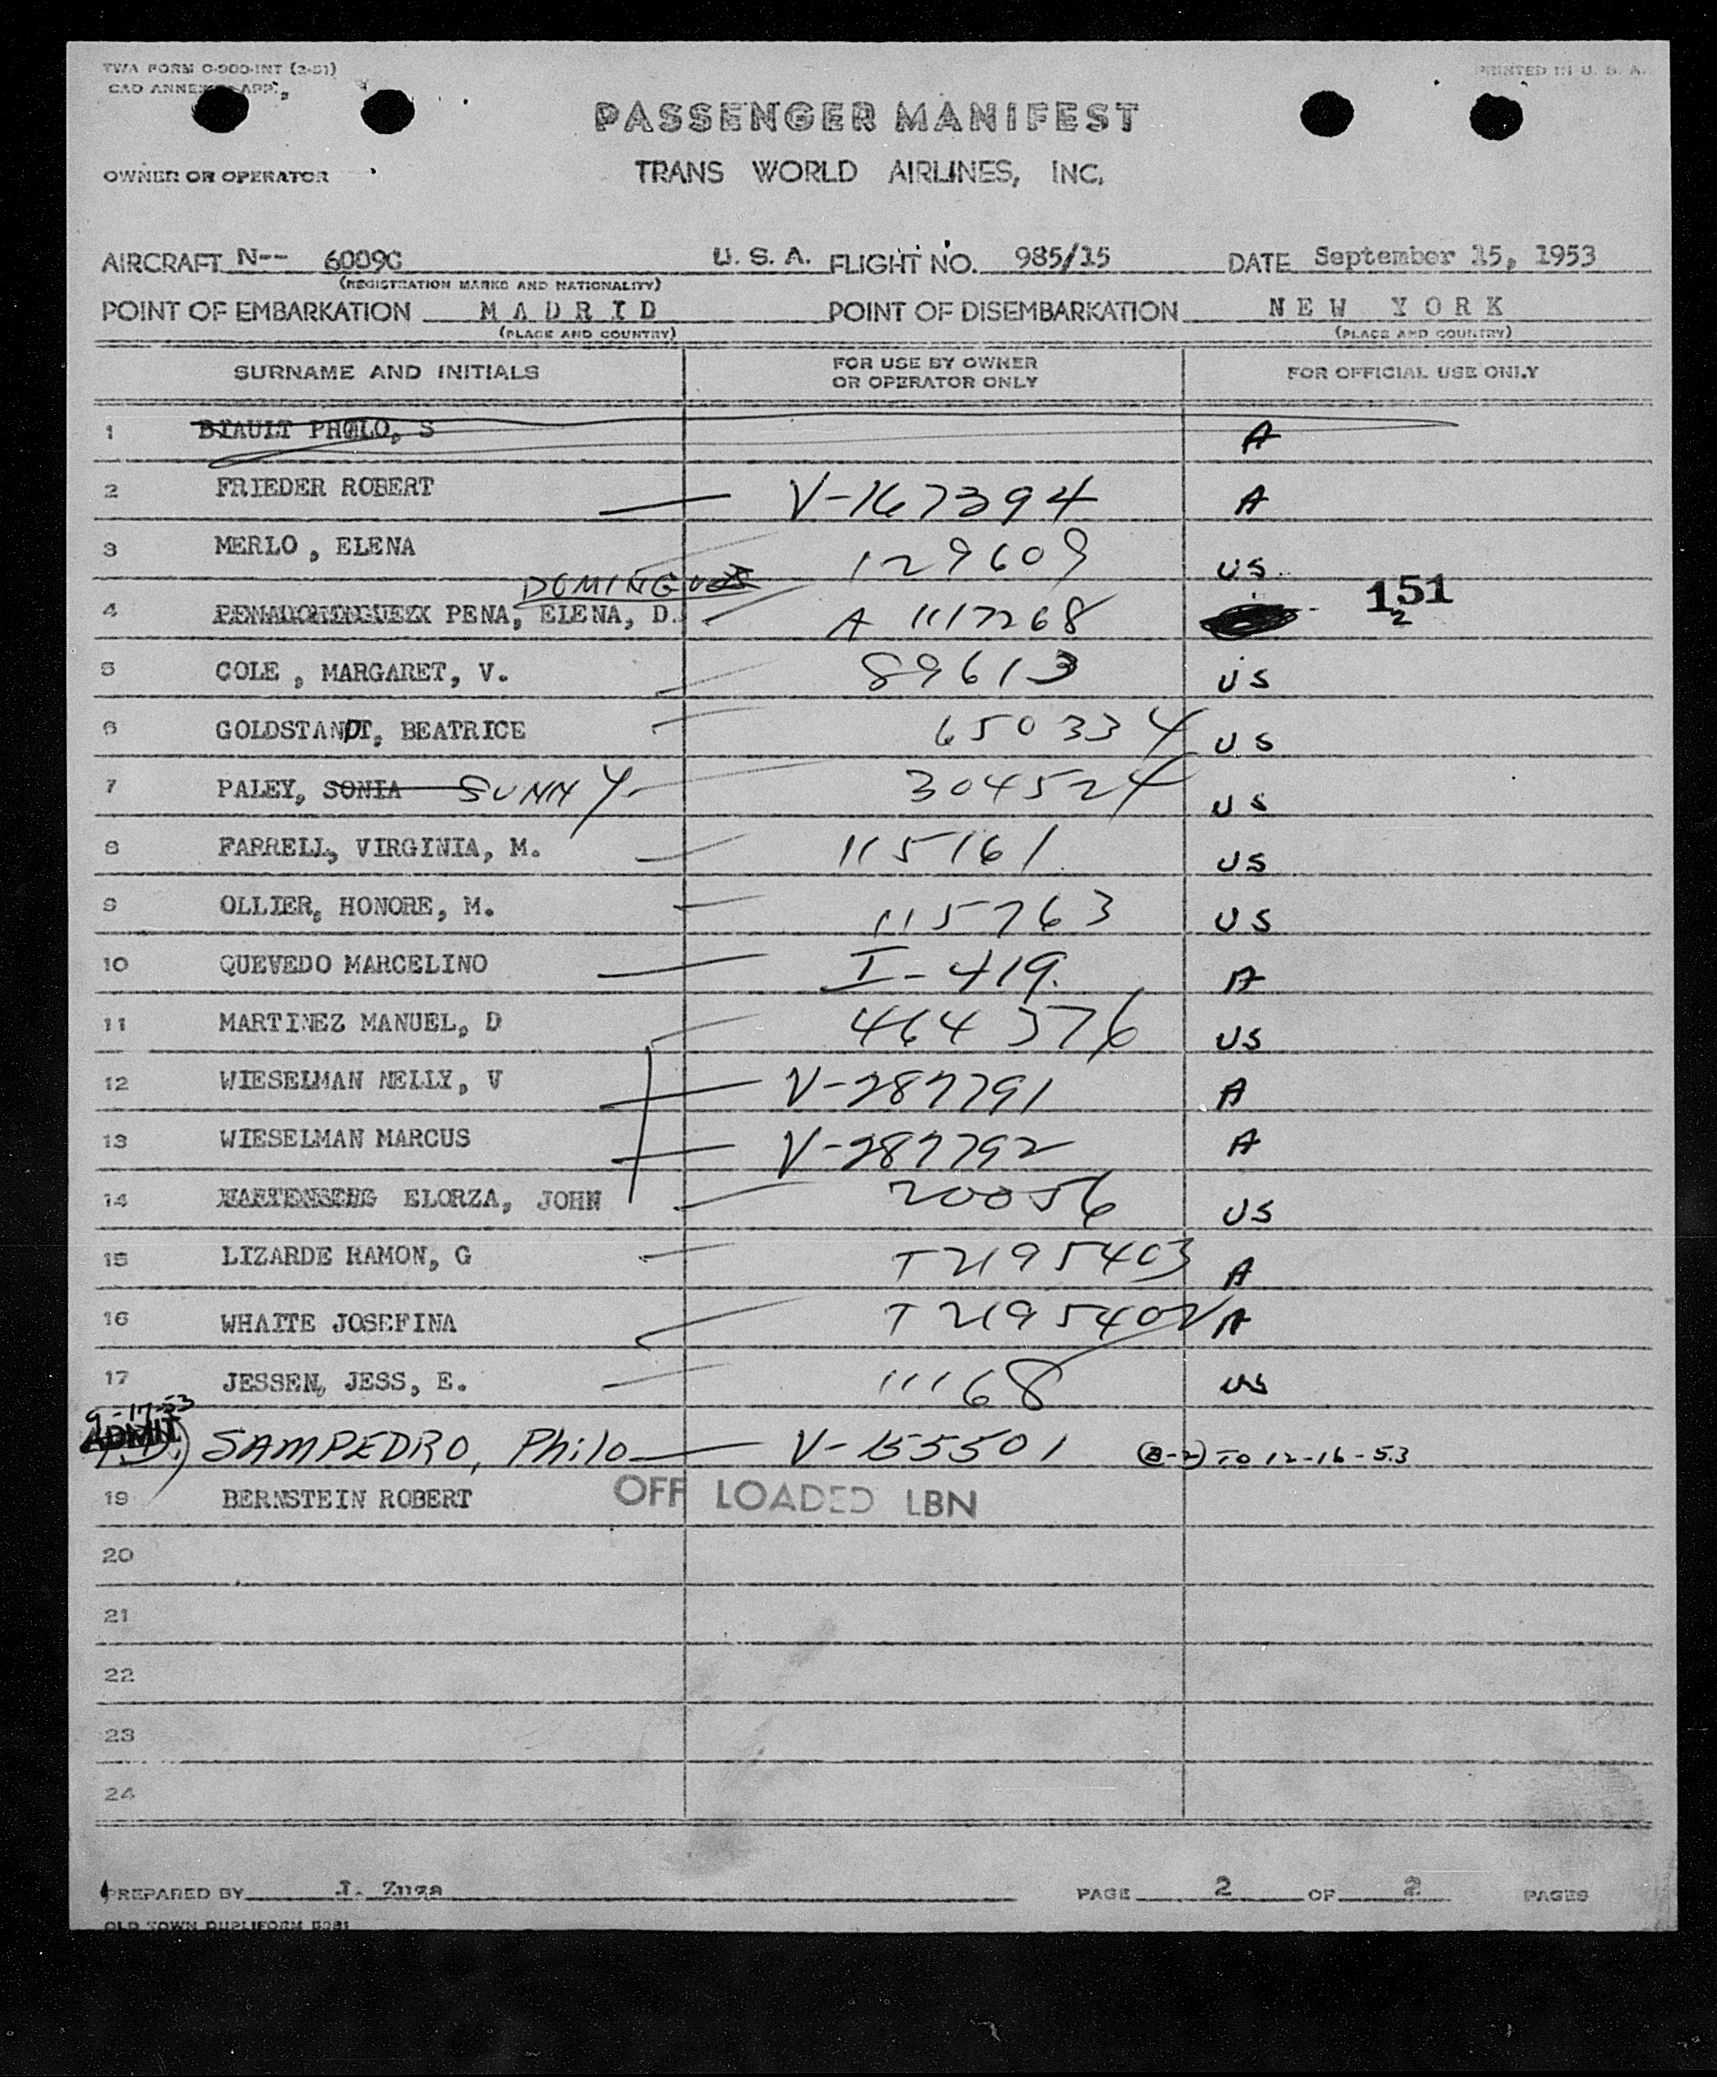 TWA FORM C-900-INT (2-51)
PRINTED IN U. S. A.
CAO ANNEX APP.,
PASSENGER MANIFEST
OWNER OR OPERATOR
TRANS WORLD AIRLINES, INC.
AIRCRAFT N-- 6009C U. S. A. FLIGHT NO. 985/15 DATE September 15, 1953
(REGISTRATION MARKS AND NATIONALITY)
POINT OF EMBARKATION MADRID POINT OF DISEMBARKATION NEW YORK
(PLACE AND COUNTRY) (PLACE AND COUNTRY)
SURNAME AND INITIALS FOR USE BY OWNER OR OPERATOR ONLY FOR OFFICIAL USE ONLY
1 BIAULT PHOLO, S A
2 FRIEDER ROBERT V-167394 A
3 MERLO, ELENA 129609 US
DOMINGUES
4 PENA, ELENA, D. A 1117268 1 51 2
5 COLE, MARGARET, V. 89613 US
6 GOLDSTANDT, BEATRICE 650334 US
7 PALEY, SONIA SUNNY 304524 US
8 FARRELL, VIRGINIA, M. 115161 US
9 OLLIER, HONORE, M. 115763 US
10 QUEVEDO MARCELINO I-419. A
11 MARTINEZ MANUEL, D 464576 US
12 WIESELMAN NELLY, V V-287791 A
13 WIESELMAN MARCUS V-287792 A
14 ELORZA, JOHN 20056 US
15 LIZARDE RAMON, G T2195403 A
16 WHAITE JOSEFINA T2195402 A
17 JESSEN, JESS, E. 11168 US
9-17-53
ADMIT SAMPEDRO, Philo V-155501 (B-2) TO 12-16-53
19 BERNSTEIN ROBERT OFF LOADED LBN
20
21
22
23
24
PREPARED BY J. Zuga PAGE 2 OF 2 PAGES
OLD TOWN DUPLIFORM